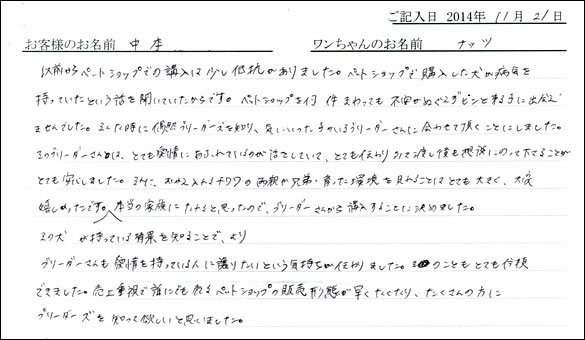 ご記入日 2014年 11月 21日
お客様のお名前 中李 ワンちゃんのお名前 ナッツ
以前からペットショップでの購入は少し抵抗がありました。ペットショップで購入した犬が病気を
持っていたという話を聞いていたからです。ペットショップを何件まわっても不安がぬぐえずピンと来る子に出会え
ませんでした。そんな時に偶然ブリーダーズを知り、気にいった子のいるブリーダーさんに会わせて頂くことにしました。
そのブリーダーさんは、とても愛情にあふれているのが話をしていて、とても伝わり 引き渡し後も相談にのって下さることが
とても安心しました。さらに、むかえ入れるチワワの両親や兄弟・育った環境を見れることはとても大きく、大変
嬉しかったです。本当の家族になれると思ったので、ブリーダーさんから購入することに決めました。
その犬が持っている背景を知ることで、より
ブリーダーさんも愛情を持っている人に譲りたいという気持ちが伝わりました。そのこともとても信頼
できました。売上重視で誰にでも売るペットショップの販売形態が早くなくなり、たくさんの方に
ブリーダーズを知って欲しいと思いました。